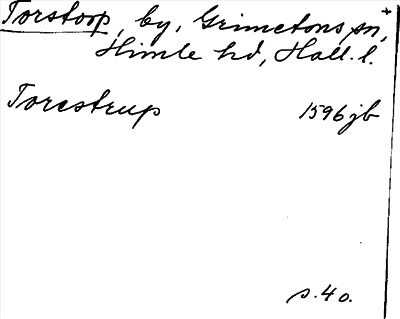 Torstorp, by, Grimetons sn,
Himle hd, Hall. l.
Torestrup 1596 jb
s. 40.